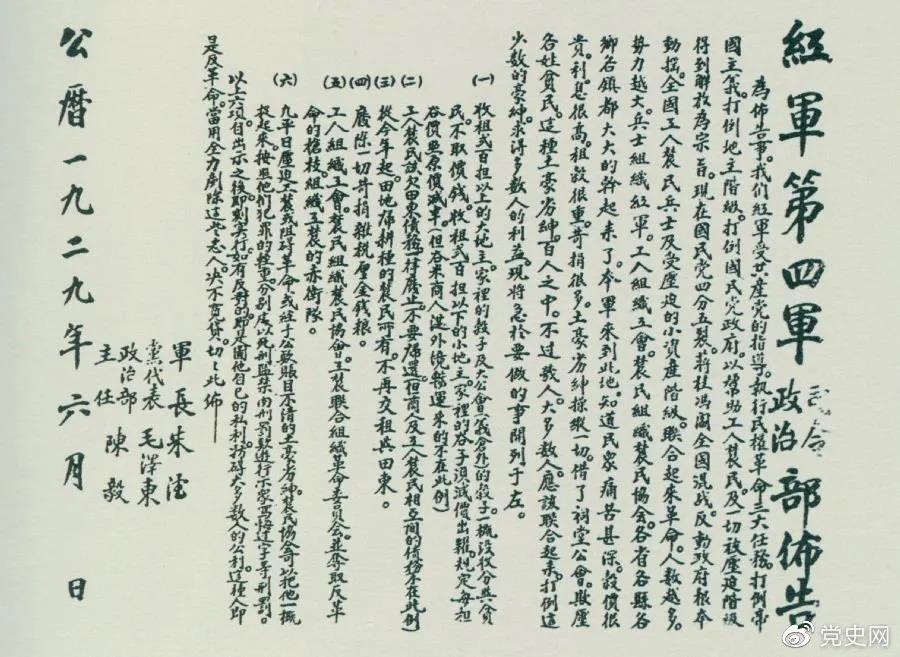 紅軍第四軍司令政治部佈告
為佈告事。我們紅軍受共產黨的指導。執行民權革命三大任務。打倒帝
國主義。打倒地主階級。打倒國民黨政府。以幫助工人農民及一切被壓迫階級
得到解放為宗旨。現在國民黨四分五裂。蔣桂馮閻全國混战。反動政府根本
動搖。全國工人農民兵士及受壓迫的小資產階級。聯合起來革命。人數越多。
势力越大。兵士組織紅軍。工人組織工會。農民組織農民協会。各省各縣各
鄉各镇都大大的幹起来了。本軍来到此地。知道民眾痛苦甚深。穀價很
貴。利息很高。租穀很重。苛捐很多。土豪劣紳操縱一切。借了祠堂公會。欺壓
各姓貧民。這種土豪劣紳。百人之中。不过数人。大多数人。應該联合起来。打倒這
少数的豪紳。求得多数人的利益。現將急於要做的事開列于左。
(一) 收租弍百担以上的大地主。家裡的穀子及大公會(義倉外)的穀子。一概没收分與貧
民。不取價钱。收租弍百担以下的小地主。家裡的谷子。須減價出糶。規定每担
谷價照原價減半。(但谷米商人從外境辦運来的不在此例)
(二) 工人農民該欠田東債務。一律廢止。不要歸還。(但商人及工人農民相互間的債務不在此例)
(三) 從今年起。田地歸耕種的農民所有。不再交租與田東。
(四) 廢除一切苛捐雜稅厘金錢粮。
(五) 工人組織工會。農民組織農民協會。工農联合組織革命委員会。並奪取反革
命的槍枝。組織工農的赤衛隊。
(六) 九平日壓迫工農。或阻碍革命。或経手公款賬目不清的土豪劣紳。農民協會可以把他一概
捉起来。按照他们犯罪的輕重。分别處以死刑監禁肉刑罰款遊行示家寫悔过字等刑罰。
以上六項。自出示之後。即刻实行。如有反對的。即是圖他自己的私利。妨碍大多数人的公利。這種人即
是反革命。當用全力剷除這些惡人。决不寬貸。切切此佈
軍長 朱德
黨代表 毛澤東
政治部主任 陳毅
公曆一九二九年六月 日
党史网